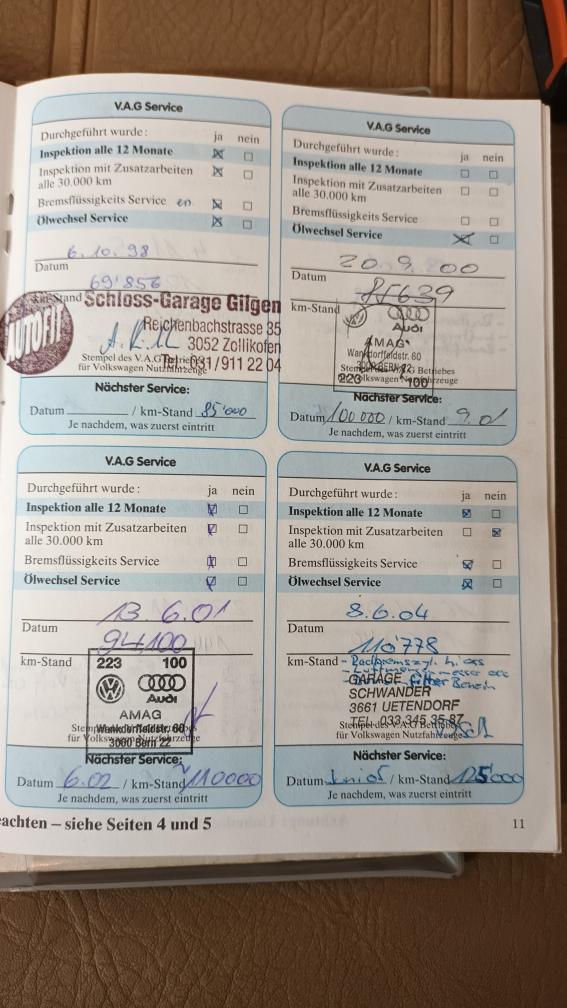 V.A.G Service
Durchgeführt wurde: ja nein
Inspektion alle 12 Monate
Inspektion mit Zusatzarbeiten
alle 30.000 km
Bremsflüssigkeits Service en
Ölwechsel Service
6.10.98
Datum
69'856
km-Stand
AUTOFIT
Schloss-Garage Gilgen
Reichenbachstrasse 35
3052 Zollikofen
Tel. 031/911 22 04
Stempel des V.A.G Betriebes
für Volkswagen Nutzfahrzeuge
Nächster Service:
Datum / km-Stand 85'000
Je nachdem, was zuerst eintritt
V.A.G Service
Durchgeführt wurde: ja nein
Inspektion alle 12 Monate
Inspektion mit Zusatzarbeiten
alle 30.000 km
Bremsflüssigkeits Service
Ölwechsel Service
20.9.00
Datum
85639
km-Stand
Audi
AMAG
Wankdorffeldstr. 60
3000 BERN 22
Stempel des V.A.G Betriebes
für Volkswagen Nutzfahrzeuge
223 100
Nächster Service:
Datum 100 000 / km-Stand 9.01
Je nachdem, was zuerst eintritt
V.A.G Service
Durchgeführt wurde: ja nein
Inspektion alle 12 Monate
Inspektion mit Zusatzarbeiten
alle 30.000 km
Bremsflüssigkeits Service
Ölwechsel Service
13.6.01
Datum
94100
km-Stand
223 100
Audi
AMAG
Wankdorffeldstr. 60
3000 Bern 22
Stempel des V.A.G Betriebes
für Volkswagen Nutzfahrzeuge
Nächster Service:
Datum 6.02 / km-Stand ~110000
Je nachdem, was zuerst eintritt
V.A.G Service
Durchgeführt wurde: ja nein
Inspektion alle 12 Monate
Inspektion mit Zusatzarbeiten
alle 30.000 km
Bremsflüssigkeits Service
Ölwechsel Service
8.6.04
Datum
110'778
km-Stand - Radbremszyl. h. ers
- Luftmengenmesser ers
Filter Benzin
GARAGE
SCHWANDER
3661 UETENDORF
TEL. 033 345 35 87
Stempel des V.A.G Betriebes
für Volkswagen Nutzfahrzeuge
Nächster Service:
Datum Juni 05 / km-Stand 125000
Je nachdem, was zuerst eintritt
eachten – siehe Seiten 4 und 5
11